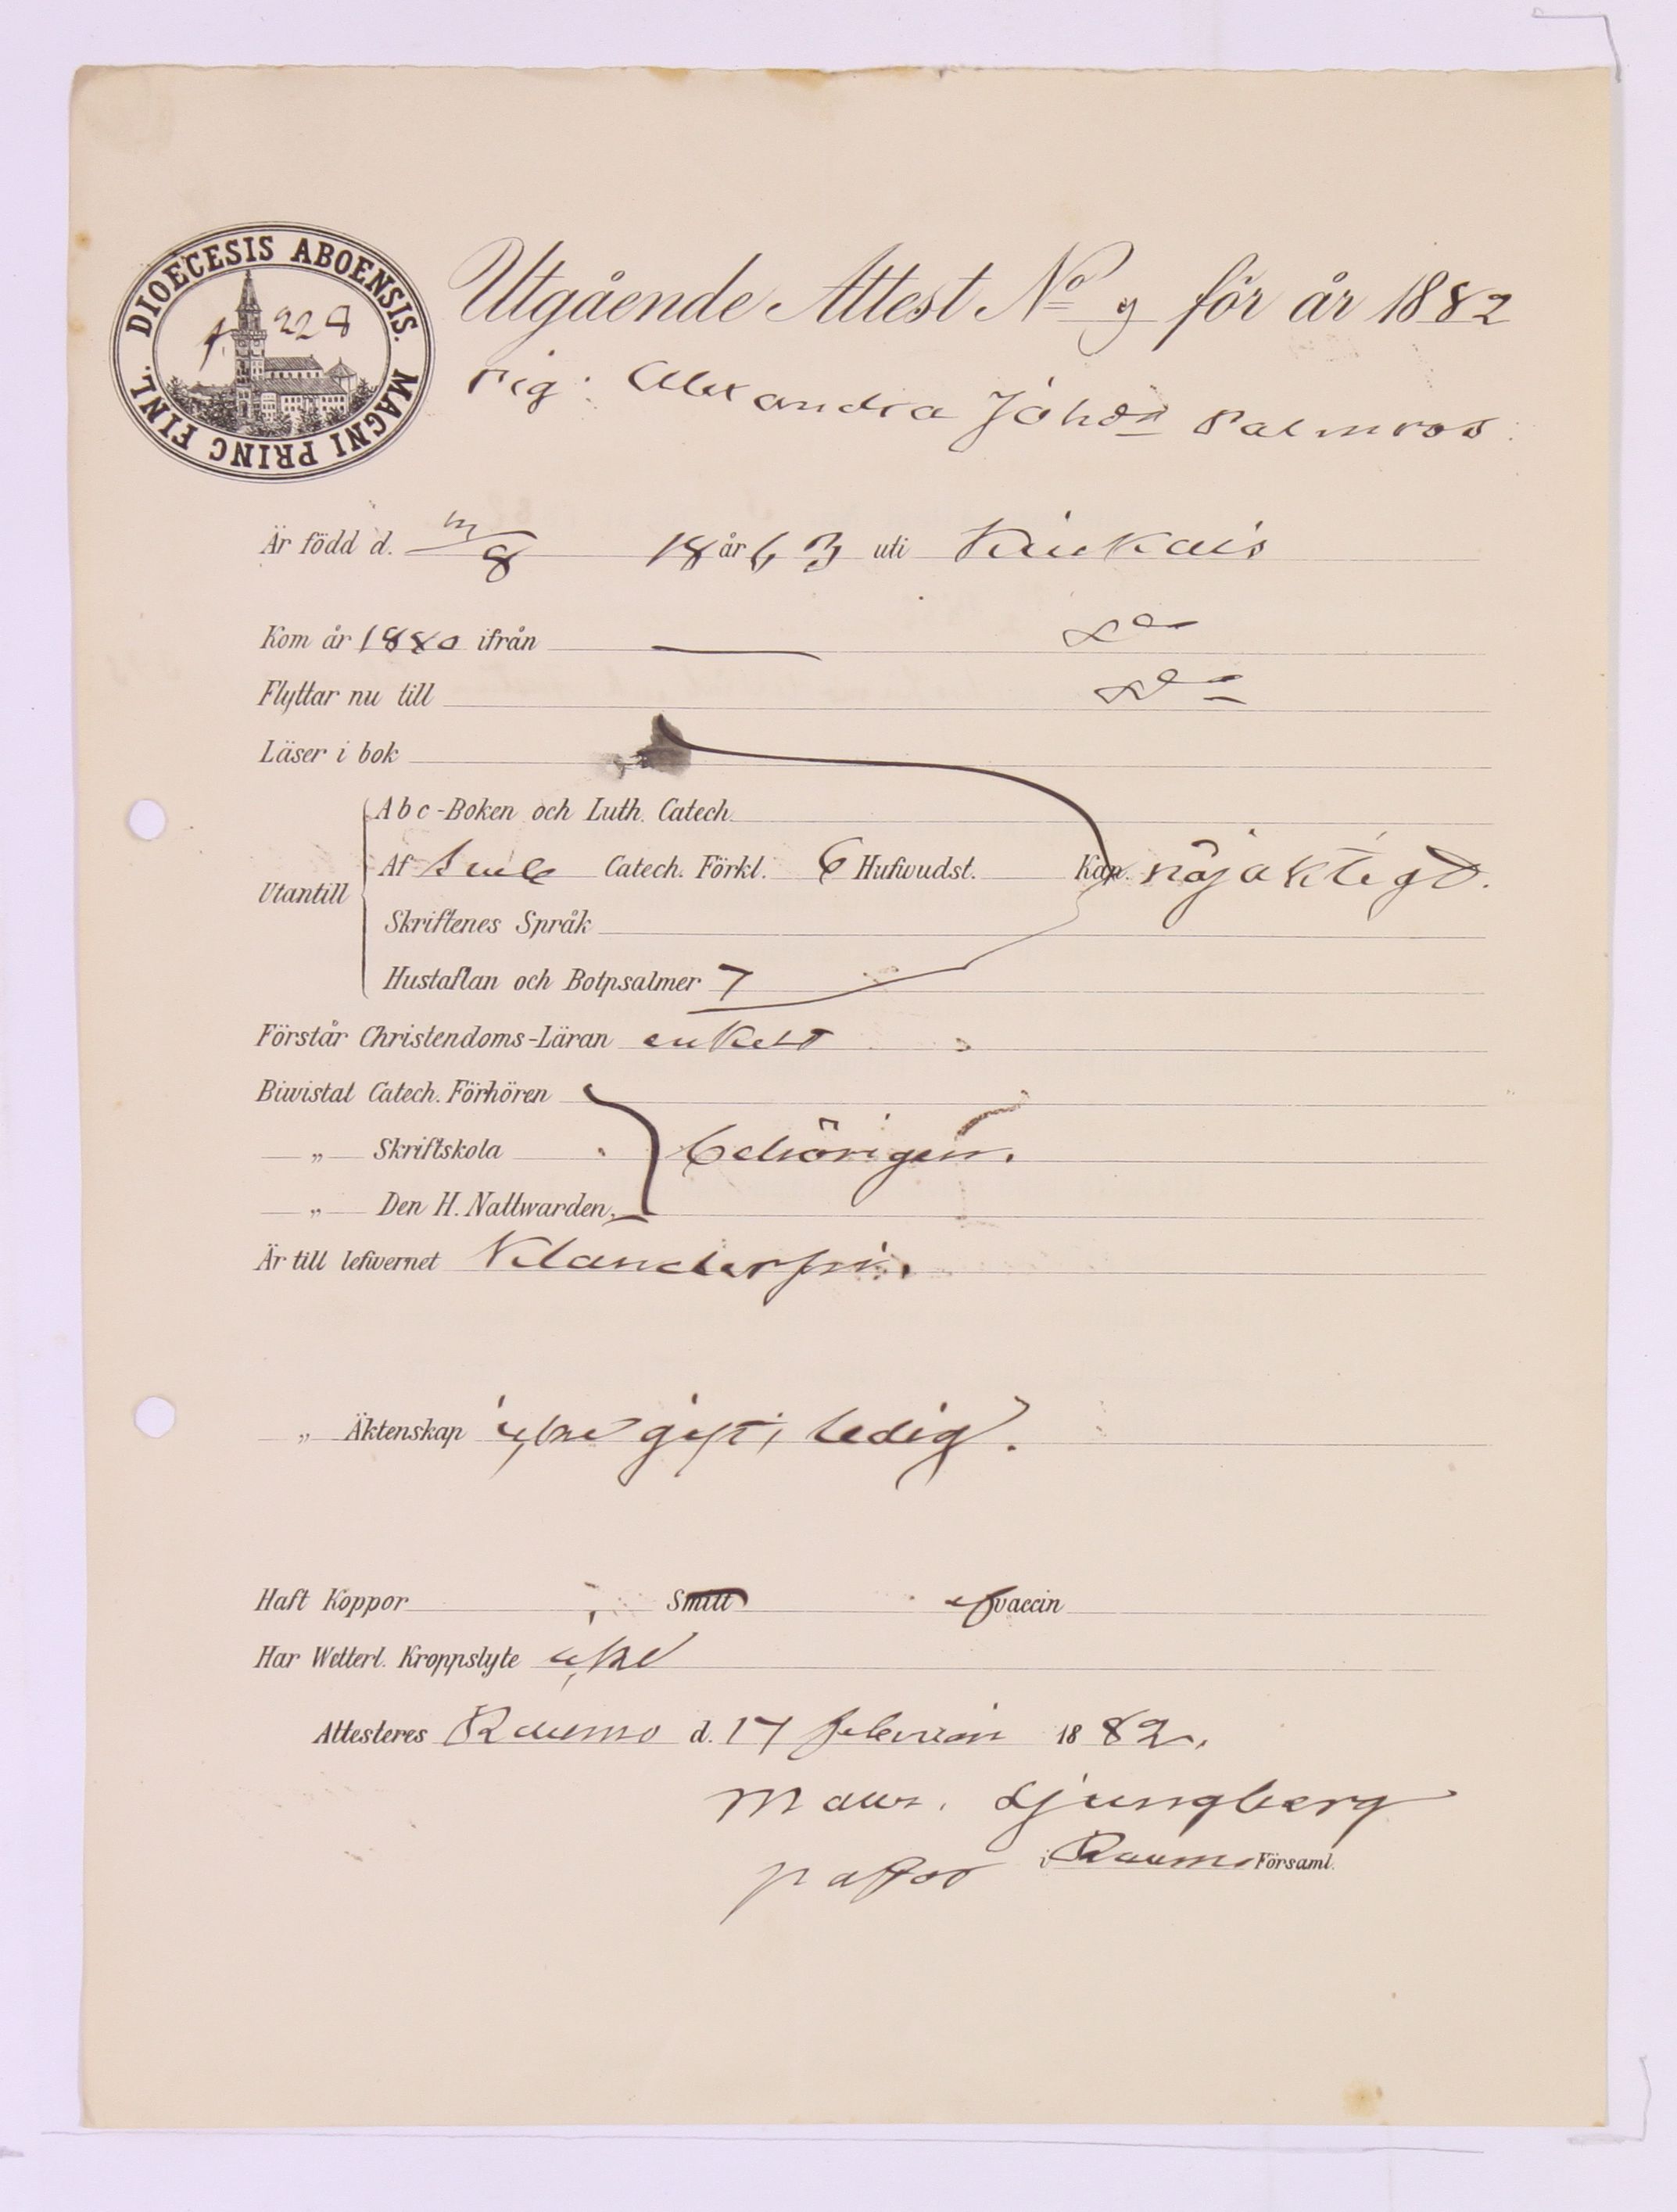 DIOECESIS ABOENSIS. MAGNI PRINC FINL.
228
Utgående Attest No 9 för år 1882
Pig: Alexandra Johdr Palmroos
Är född d. /8 18 år 63 uti Kiukais
Kom år 1880 ifrån — do
Flyttar nu till do
Läser i bok
Abc-Boken och Luth. Catech.
Utantill
Af Catech. Förkl. 6 Hufwudst. Kap. nöjaktigt.
Skriftenes Språk
Hustaflan och Botpsalmer 7
Förstår Christendoms-Läran enkelt
Biwistat Catech. Förhören
„ Skriftskola behörigen.
„ Den H. Nattwarden
Är till lefwernet klanderfri.
„ Äktenskap icke gift, ledig.
Haft Koppor Smitt vaccin
Har Wetterl. Kroppslyte icke
Attesteres Raumo d. 17 Februari 1882.
Maur. Ljungberg
pastor i Raumo Församl.